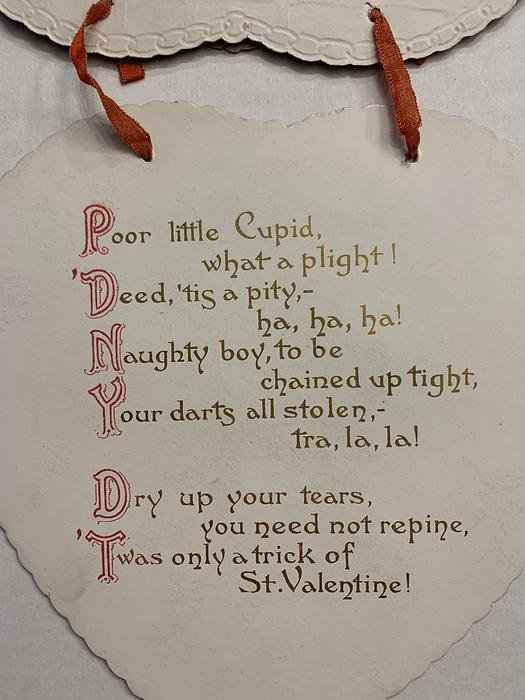 Poor little Cupid,
what a plight!
'Deed, 'tis a pity,-
ha, ha, ha!
Naughty boy, to be
chained up tight,
Your darts all stolen,-
tra, la, la!
Dry up your tears,
you need not repine,
'Twas only a trick of
St. Valentine!